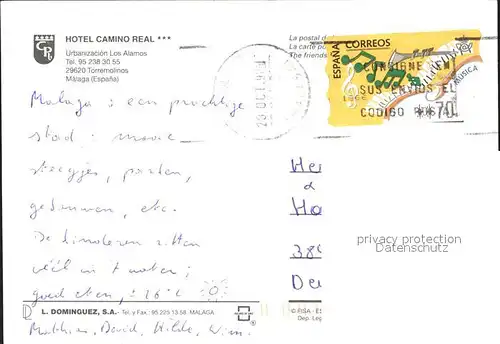 HOTEL CAMINO REAL ***
Urbanización Los Alamos
Tel. 95 238 30 55
29620 Torremolinos
Málaga (España)
La postal de
La carte po
The friends
ESPAÑA CORREOS
CONSIGNE EN
SUS ENVIOS EL
CODIGO POSTAL
**70
MUSICA
Malaga: een prachtige
stad: mooie
steegjes, parken,
gebouwen, etc.
De kinderen zitten
veel in 't water;
goed eten, ± 16°C
Matthias, David, Hilde, Wim.
He
&
Ha
38
De
privacy protection
watermark
L. DOMINGUEZ, S.A.- Tel. y Fax.: 95 225 13 58. MALAGA
© FISA - ES
Dep. Leg